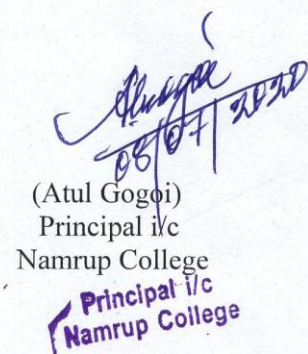 08/07/2020
(Atul Gogoi)
Principal i/c
Namrup College
Principal i/c
Namrup College